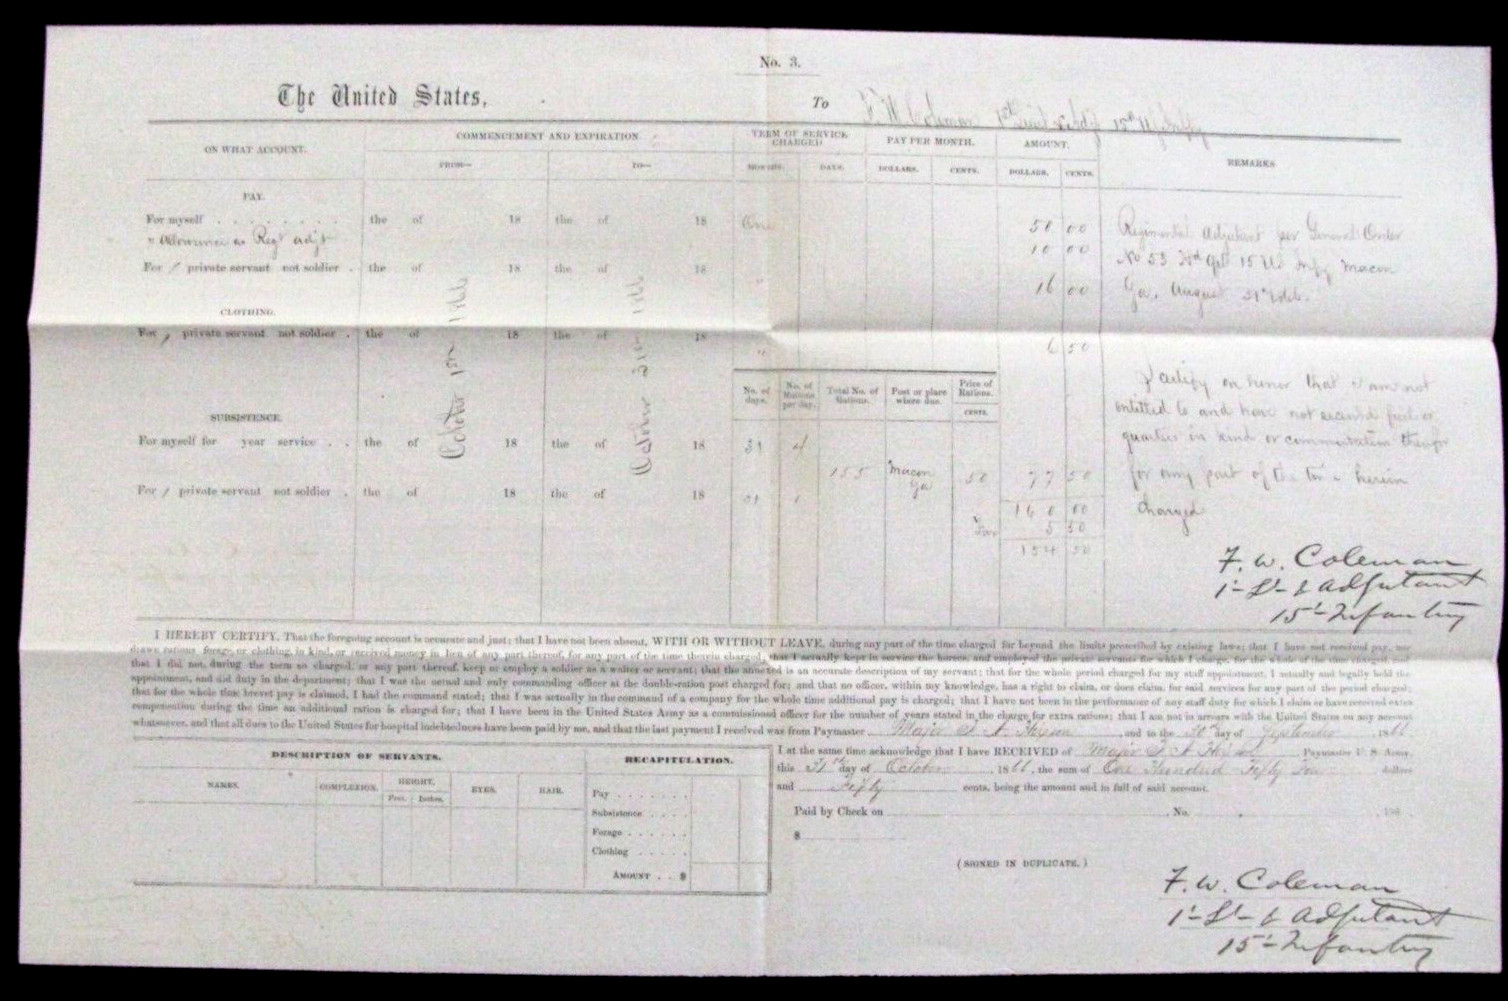 No. 3.
The United States,
To F. W. Coleman 1st Lieut & Adjt 15th U.S. Infty
ON WHAT ACCOUNT.
COMMENCEMENT AND EXPIRATION.
TERM OF SERVICE CHARGED
PAY PER MONTH.
AMOUNT.
REMARKS
FROM—
TO—
MONTHS.
DAYS.
DOLLARS.
CENTS.
DOLLARS.
CENTS.
PAY.
For myself . . . . . . . . the of 18 the of 18 One 50 00
" Allowance as Regt adjt 10 00
For 1 private servant not soldier . the of 18 the of 18 " 16 00
Regimental Adjutant per General Order
No 53 Hd qrs 15 U.S. Infy Macon
Ga. August 31st 1866.
CLOTHING.
For 1 private servant not soldier . the of 18 the of 18 " 6 50
October 1st 1866
October 31st 1866
No. of days.
No. of Rations per day.
Total No. of Rations.
Post or place where due.
Price of Rations.
CENTS.
SUBSISTENCE.
For myself for year service . . the of 18 the of 18 31 4
155 Macon Ga 50 77 50
For 1 private servant not soldier . the of 18 the of 18 31 1
160 00
Tax 5 50
154 50
I certify on honor that I am not
entitled to and have not received fuel or
quarters in kind or commutation therefor
for any part of the time herein
charged
F. W. Coleman
1st Lt & Adjutant
15th Infantry
I HEREBY CERTIFY, That the foregoing account is accurate and just; that I have not been absent, WITH OR WITHOUT LEAVE, during any part of the time charged for beyond the limits prescribed by existing laws; that I have not received pay, nor
drawn rations, forage, or clothing, in kind, or received money in lieu of any part thereof, for any part of the time therein charged; that I actually kept in service the horses, and employed the private servants for which I charge, for the whole of the time charged, and
that I did not, during the term so charged, or any part thereof, keep or employ a soldier as a waiter or servant; that the annexed is an accurate description of my servant; that for the whole period charged for my staff appointment, I actually and legally held the
appointment, and did duty in the department; that I was the actual and only commanding officer at the double-ration post charged for; and that no officer, within my knowledge, has a right to claim, or does claim, for said services for any part of the period charged;
that for the whole time brevet pay is claimed, I had the command stated; that I was actually in the command of a company for the whole time additional pay is charged; that I have not been in the performance of any staff duty for which I claim or have received extra
compensation during the time an additional ration is charged for; that I have been in the United States Army as a commissioned officer for the number of years stated in the charge for extra rations; that I am not in arrears with the United States on any account
whatsoever, and that all dues to the United States for hospital indebtedness have been paid by me, and that the last payment I received was from Paymaster Major , and to the 30th day of September , 1866
DESCRIPTION OF SERVANTS.
NAMES.
COMPLEXION.
HEIGHT.
Feet.
Inches.
EYES.
HAIR.
RECAPITULATION.
Pay . . . . . . .
Subsistence . . . .
Forage . . . . . .
Clothing . . . . .
AMOUNT . . $
I at the same time acknowledge that I have RECEIVED of Major Paymaster U. S. Army,
this 31st day of October , 1866, the sum of One Hundred Fifty Four dollars
and Fifty cents, being the amount and in full of said account.
Paid by Check on , No. , 186 .
$
(SIGNED IN DUPLICATE.)
F. W. Coleman
1st Lt & Adjutant
15th Infantry